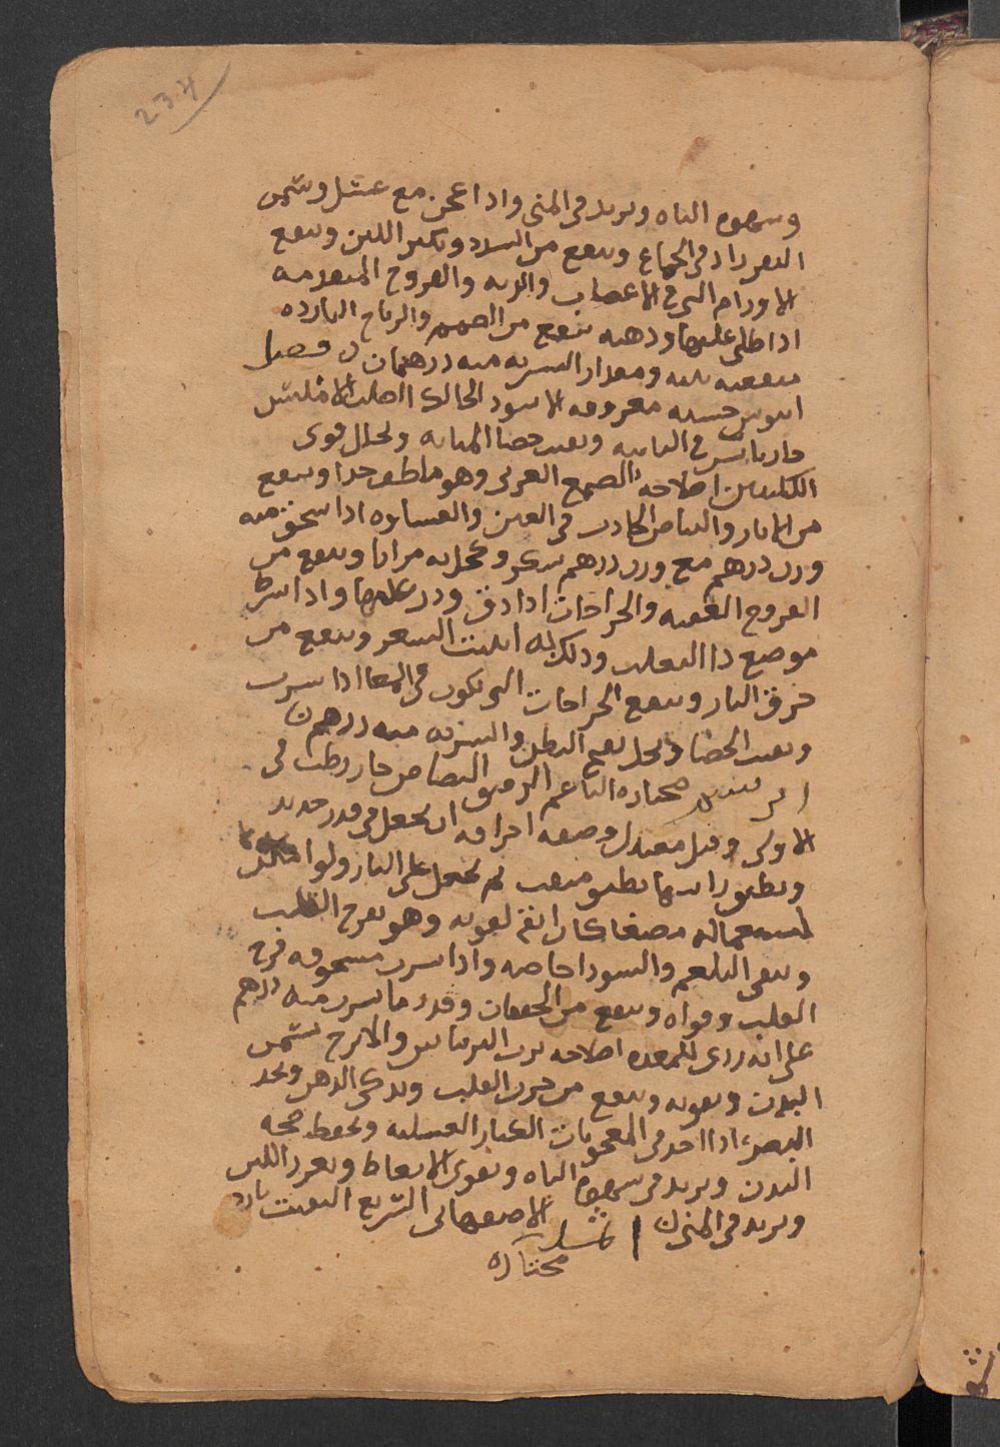 234
وشهوه الباه ويزيد في المني واذا عجن مع عسل وشحم
البقر زاد في الجماع وينفع من السدد ويكثر اللبن وينفع
الاورام التي في الاعصاب والريه والقروح المتقدمه
اذا طلي عليها ودهنه ينفع من الصمم والرياح البارده
منفعه بينه ومقدار الشربه منه درهمان فصل
ابنوس حسنه معروفه الاسود الحالك الصلب الاملس
حار يابس في الثانيه ويفتت حصا المثانه ويحلل قوي
الكليتين اصلاحه بالصمغ العربي وهو ملطف جدا وينفع
من الاثار والبياض الحادث في العين والغشاوه اذا سحق منه
وزن درهم مع وزن درهم سكر وكحل به مرارا وينفع من
القروح العفنه والجراحات اذا دق وذر عليها واذا
موضع دا الثعلب ودلك به انبت الشعر وينفع من
حرق النار وينفع الجراحات التي تكون في المعا اذا شرب
ويفتت الحصا ويحل نفخ البطن والشربه منه درهم
ابريسم مختاره الناعم الرقيق البصاص حار رطب في
الاولى وقيل معتدل وصفه احراقه ان يجعل في قدر حديد
ويطبق راسها بطبق مثقب ثم يجعل على النار ولو
كان انفع لقوته وهو يفرح القلب
وينقي البلغم والسودا خاصه واذا شرب مسحوقه فرح
القلب وقواه وينفع من الخفقان وقدر ما يشرب منه درهم
على انه ردي للمعده اصلاحه برب الريباس والاترج يسمن
البدن ويقويه وينفع من حزن القلب ويذكي الذهن ويحد
البصر اذا اخذ في المعجونات الكبار العسليه ويحفظ صحه
البدن ويزيد في شهوه الباه ويقوي الانعاظ ويغزر اللبن
ويزيد في المني الاصفهاني السريع التفتت بارد
مختاره